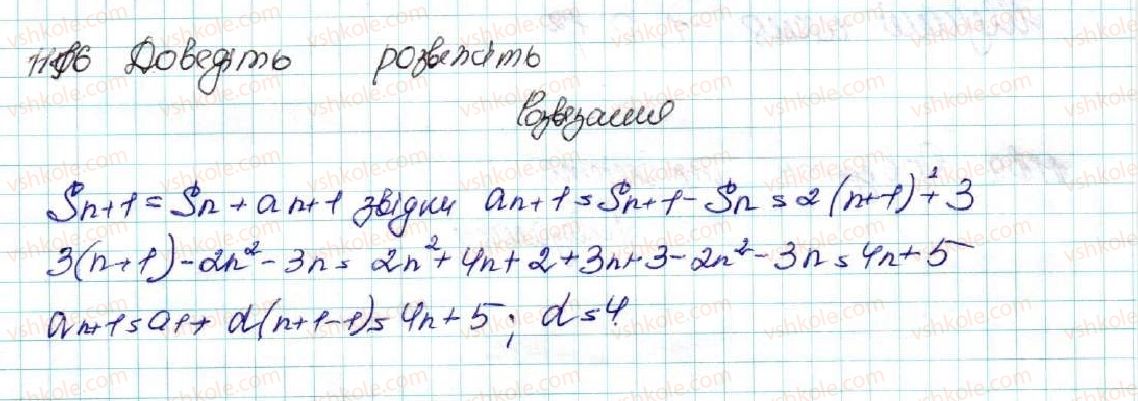 1106 Доведіть розв'яжіть
Розв'язання
Sn+1 = Sn + an+1 звідки an+1 = Sn+1 - Sn = 2(n+1)² + 3
3(n+1) - 2n² - 3n = 2n² + 4n + 2 + 3n + 3 - 2n² - 3n = 4n + 5
an+1 = a1 + d(n+1-1) = 4n + 5; d = 4